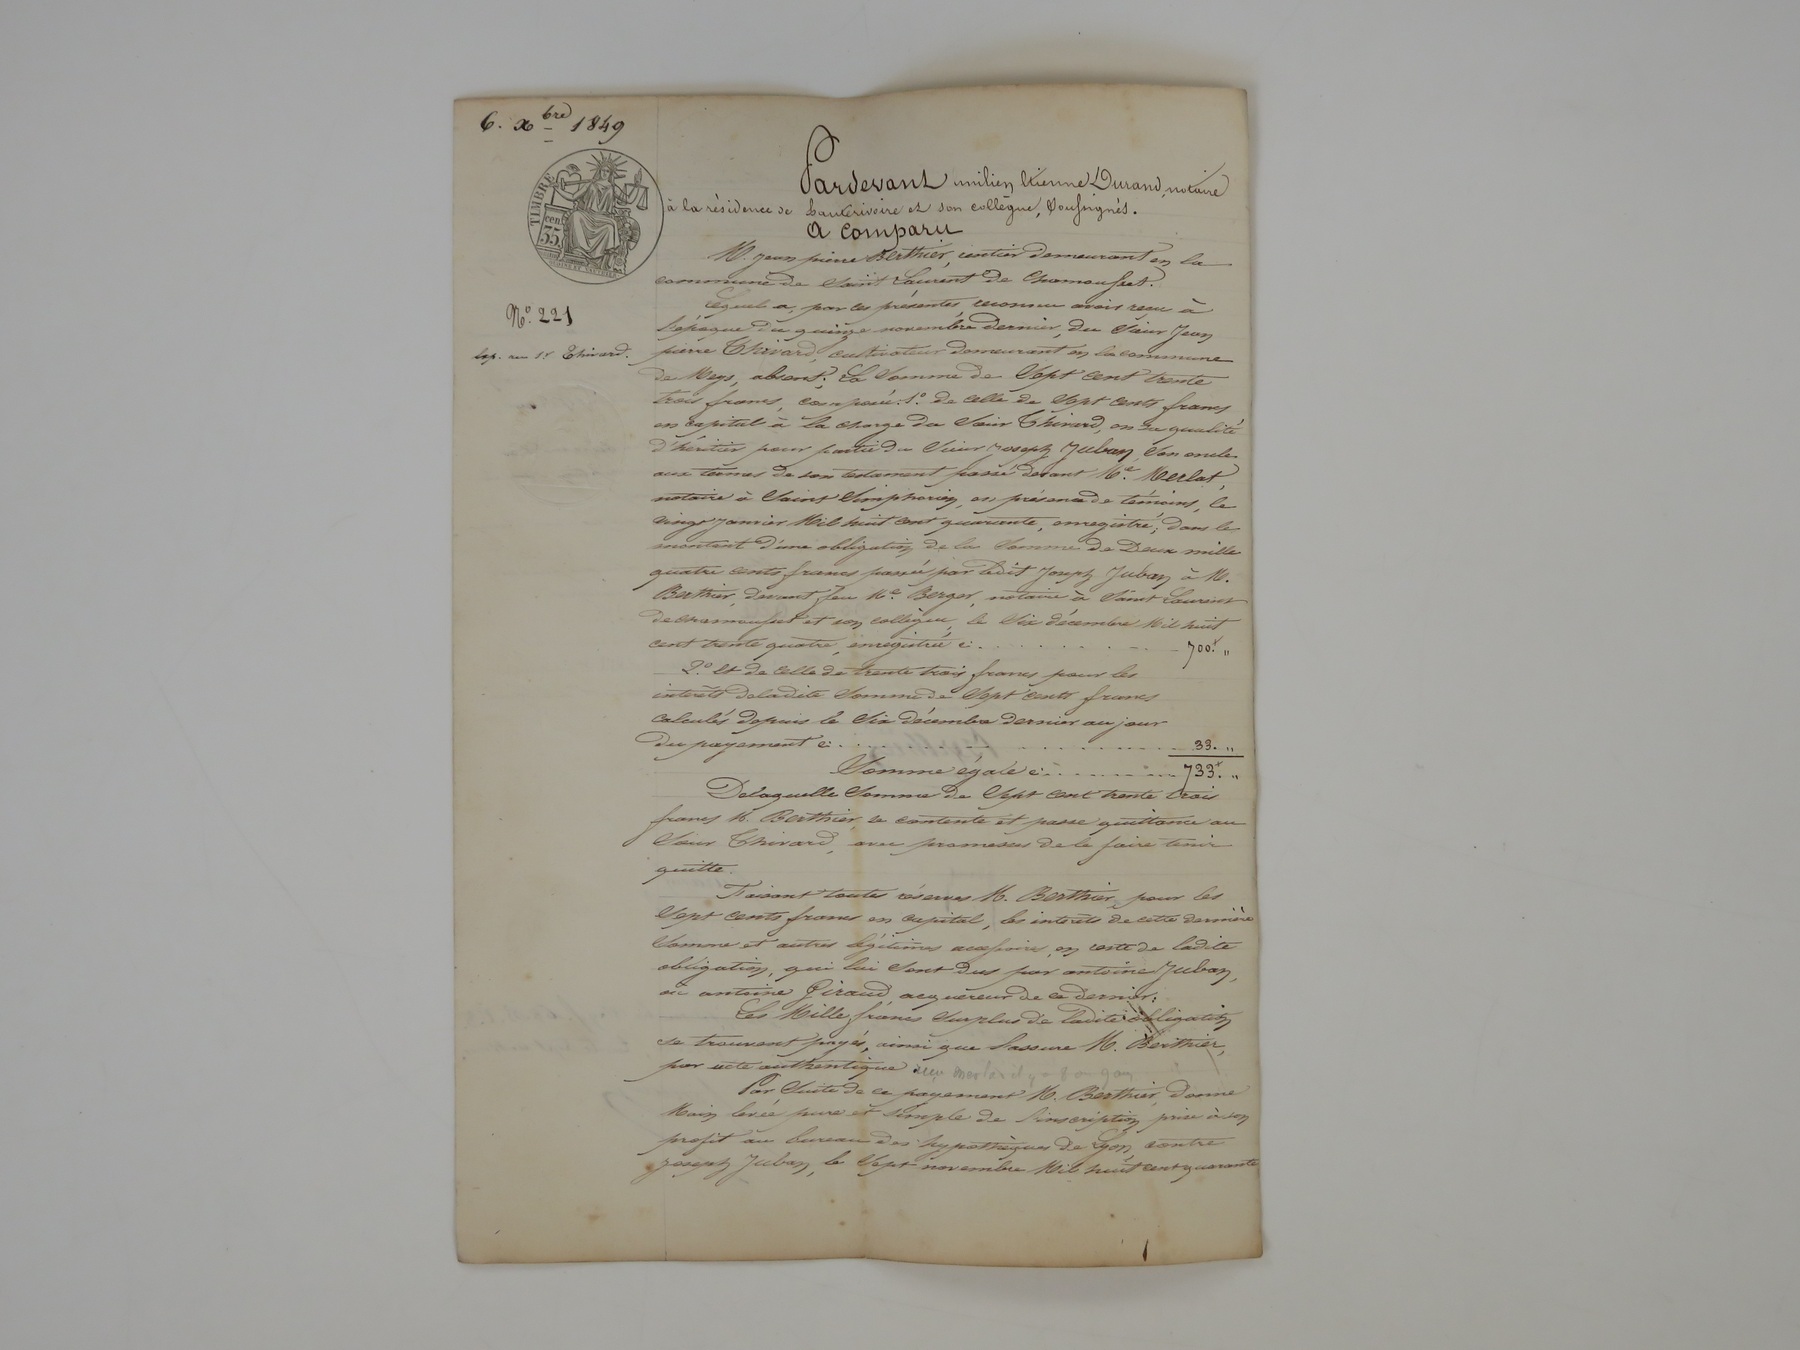 6. Xbre 1849
TIMBRE
cen
35
Nº. 221
exp. au Sr Thivard.
Pardevant Emilien Etienne Durand, notaire
à la résidence de hauterivoire et son collègue, Soussignés.
a comparu
M. Jean pierre Berthier, rentier demeurant en la
commune de Saint Laurent de Chamousset.
Lequel a, par ces présentes reconnu avoir reçu à
l'époque du quinze novembre dernier, du Sieur Jean
pierre Thivard, cultivateur demeurant en la commune
de Meys, absent; La Somme de Sept cent trente
trois francs, composée: 1º. de celle de Sept cents francs
en capital à la charge du Sieur Thivard, en sa qualité
d'héritier pour partie du Sieur Joseph Juban, Son oncle
aux termes de son testament passé devant Me. Merlat,
notaire à Saint Simphorien, en présence de témoins, le
vingt Janvier Mil huit cent quarante, enregistré; dans le
montant d'une obligation de la Somme de Deux mille
quatre cents francs passée par ledit Joseph Juban à M.
Berthier, devant feu Me. Berger, notaire à Saint Laurent
de chamousset et son collègue, le Six décembre Mil huit
cent trente quatre, enregistrée ci . . . . . . . . . 700f. „
2º. Et de celle de trente trois francs pour les
intérêts de ladite Somme de Sept cents francs
calculés depuis le Six décembre dernier au jour
du payement ci . . . . . . . . . . . . . . . 33. „
Somme égale ci . . . . . . . . 733f. „
De laquelle Somme de Sept cent trente trois
francs M. Berthier, se contente et passe quittance au
Sieur Thivard, avec promesses de le faire tenir
quitte.
Faisant toutes réserves M. Berthier, pour les
Sept cents francs en capital, les intérêts de cette dernière
Somme et autres légitimes accessoires, en reste de ladite
obligation, qui lui Sont dus par antoine Juban,
ou antoine Giraud, acquéreur de ce dernier;
Les Mille francs Surplus de ladite obligation
se trouvent payés, ainsi que l'assure M. Berthier,
par acte authentique reçu Merlat il y a 8 ou 9 an
Par Suite de ce payement M. Berthier, donne
Main levée pure et simple de l'inscription prise à son
profit au bureau des hypothèques de Lyon contre
Joseph Juban, le Sept novembre Mil huit cent quarante